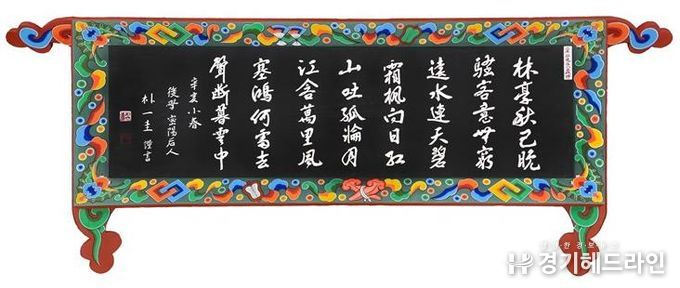 林亭秋已晩
騷客意無窮
遠水連天碧
霜楓向日紅
山吐孤輪月
江含萬里風
塞鴻何處去
聲斷暮雲中
辛亥小春
後學密陽后人
朴一圭 謹書
경기헤드라인